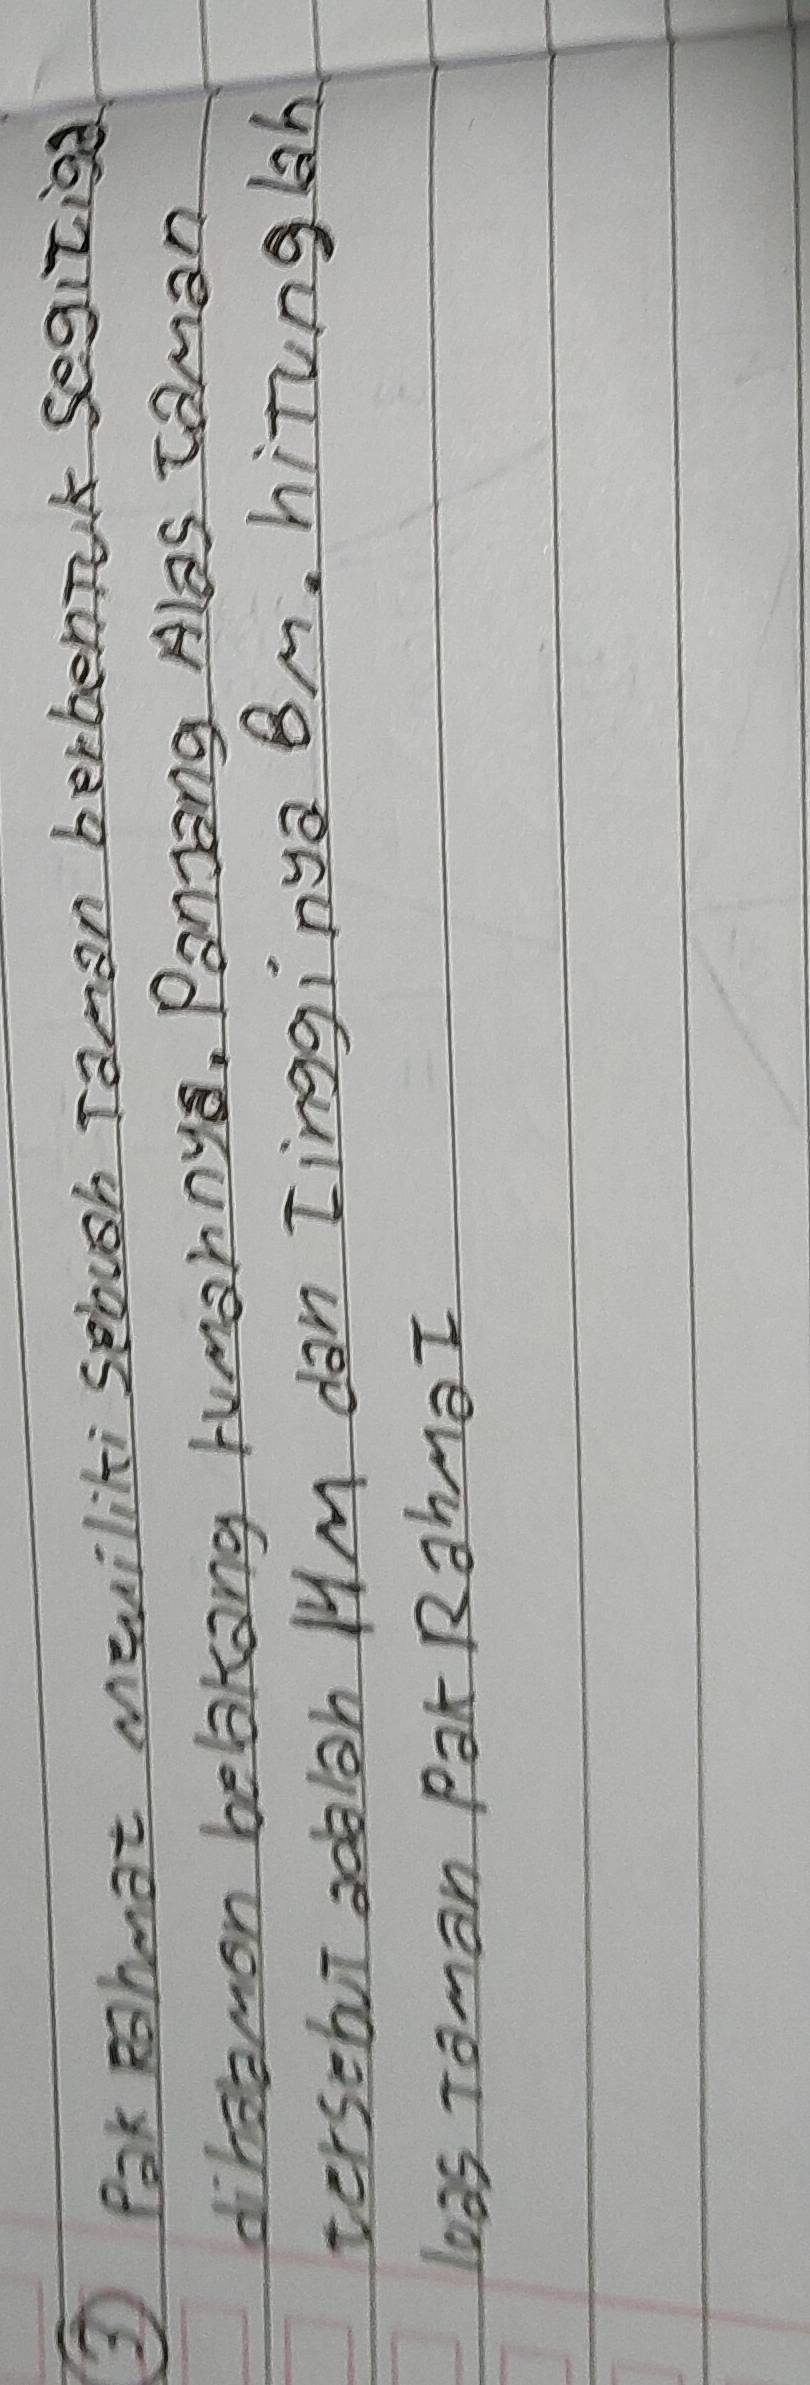 ③ Pak Rahmat memiliki sebuah Taman berbentuk segitiga
dihalaman belakang rumahnya. Pancang Alas taman
tersebut adalah 14 M dan Tingginya 8 m. hitunglah
luas Taman Pak Rahmat